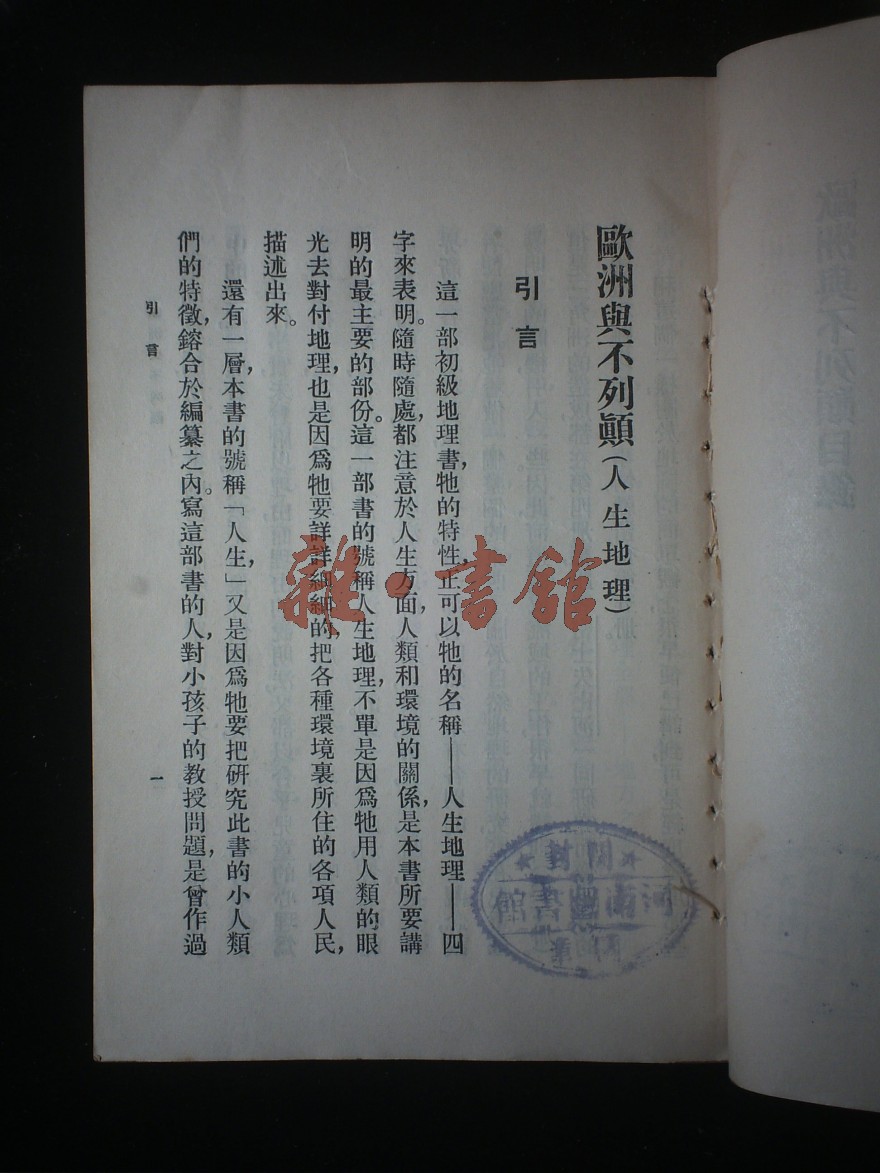 歐洲與不列顛(人生地理)
引言
這一部初級地理書,牠的特性,正可以牠的名稱——人生地理——四
字來表明。隨時隨處,都注意於人生方面,人類和環境的關係,是本書所要講
明的最主要的部份。這一部書的號稱人生地理,不單是因爲牠用人類的眼
光去對付地理,也是因爲牠要詳詳細細的,把各種環境裏所住的各項人民,
描述出來。
還有一層,本書的號稱「人生,」又是因爲牠要把研究此書的小人類
們的特徵,鎔合於編纂之內。寫這部書的人,對小孩子的教授問題,是曾作過
引言
一
雜·書館
開封
河南
書館
歐洲與不列顛目錄